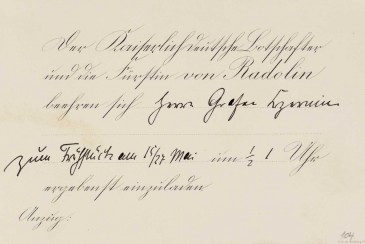 Der Kaiserlich deutsche Botschafter
und die Fürstin von Radolin
beehren sich Herrn Grafen Czernin
zum Frühstück am 15/27 Mai um ½ 1 Uhr
ergebenst einzuladen
Anzug:
104